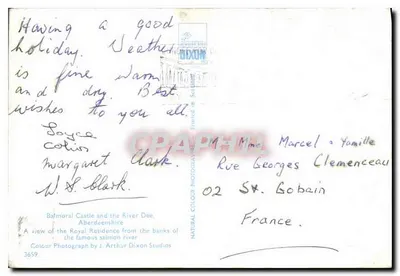 Having a good
holiday. Weather
is fine warm
and dry. Best
wishes to you all
Joyce
Colin
Margaret Clark.
W. S. Clark.
Balmoral Castle and the River Dee,
Aberdeenshire
A view of the Royal Residence from the banks of
the famous salmon river
Colour Photograph by J. Arthur Dixon Studios
3659
DIXON
NATURAL COLOUR PHOTOGRAPH
M. Mme. Marcel - Yamille
Rue Georges Clemenceau
02 St. Gobain
France.